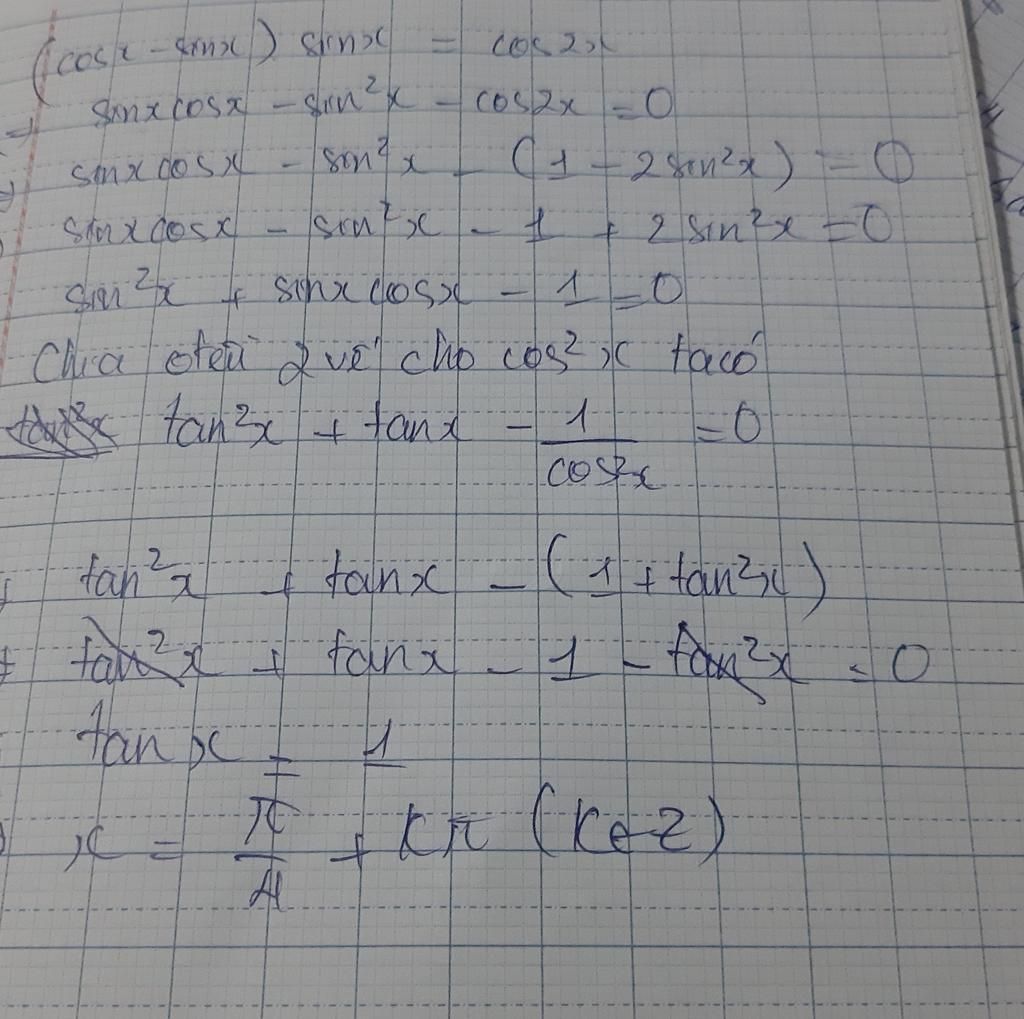 (cosx - sinx) sinx = cos2x
=> sinxcosx - sin²x - cos2x = 0
sinxcosx - sin²x - (1 - 2sin²x) = 0
sinxcosx - sin²x - 1 + 2sin²x = 0
sin²x + sinxcosx - 1 = 0
Chia đều 2 vế cho cos²x ta có
tan²x + tanx - 1/cos²x = 0
tan²x + tanx - (1 + tan²x)
tan²x + tanx - 1 - tan²x = 0
tanx = 1
x = π/4 + kπ (k∈Z)